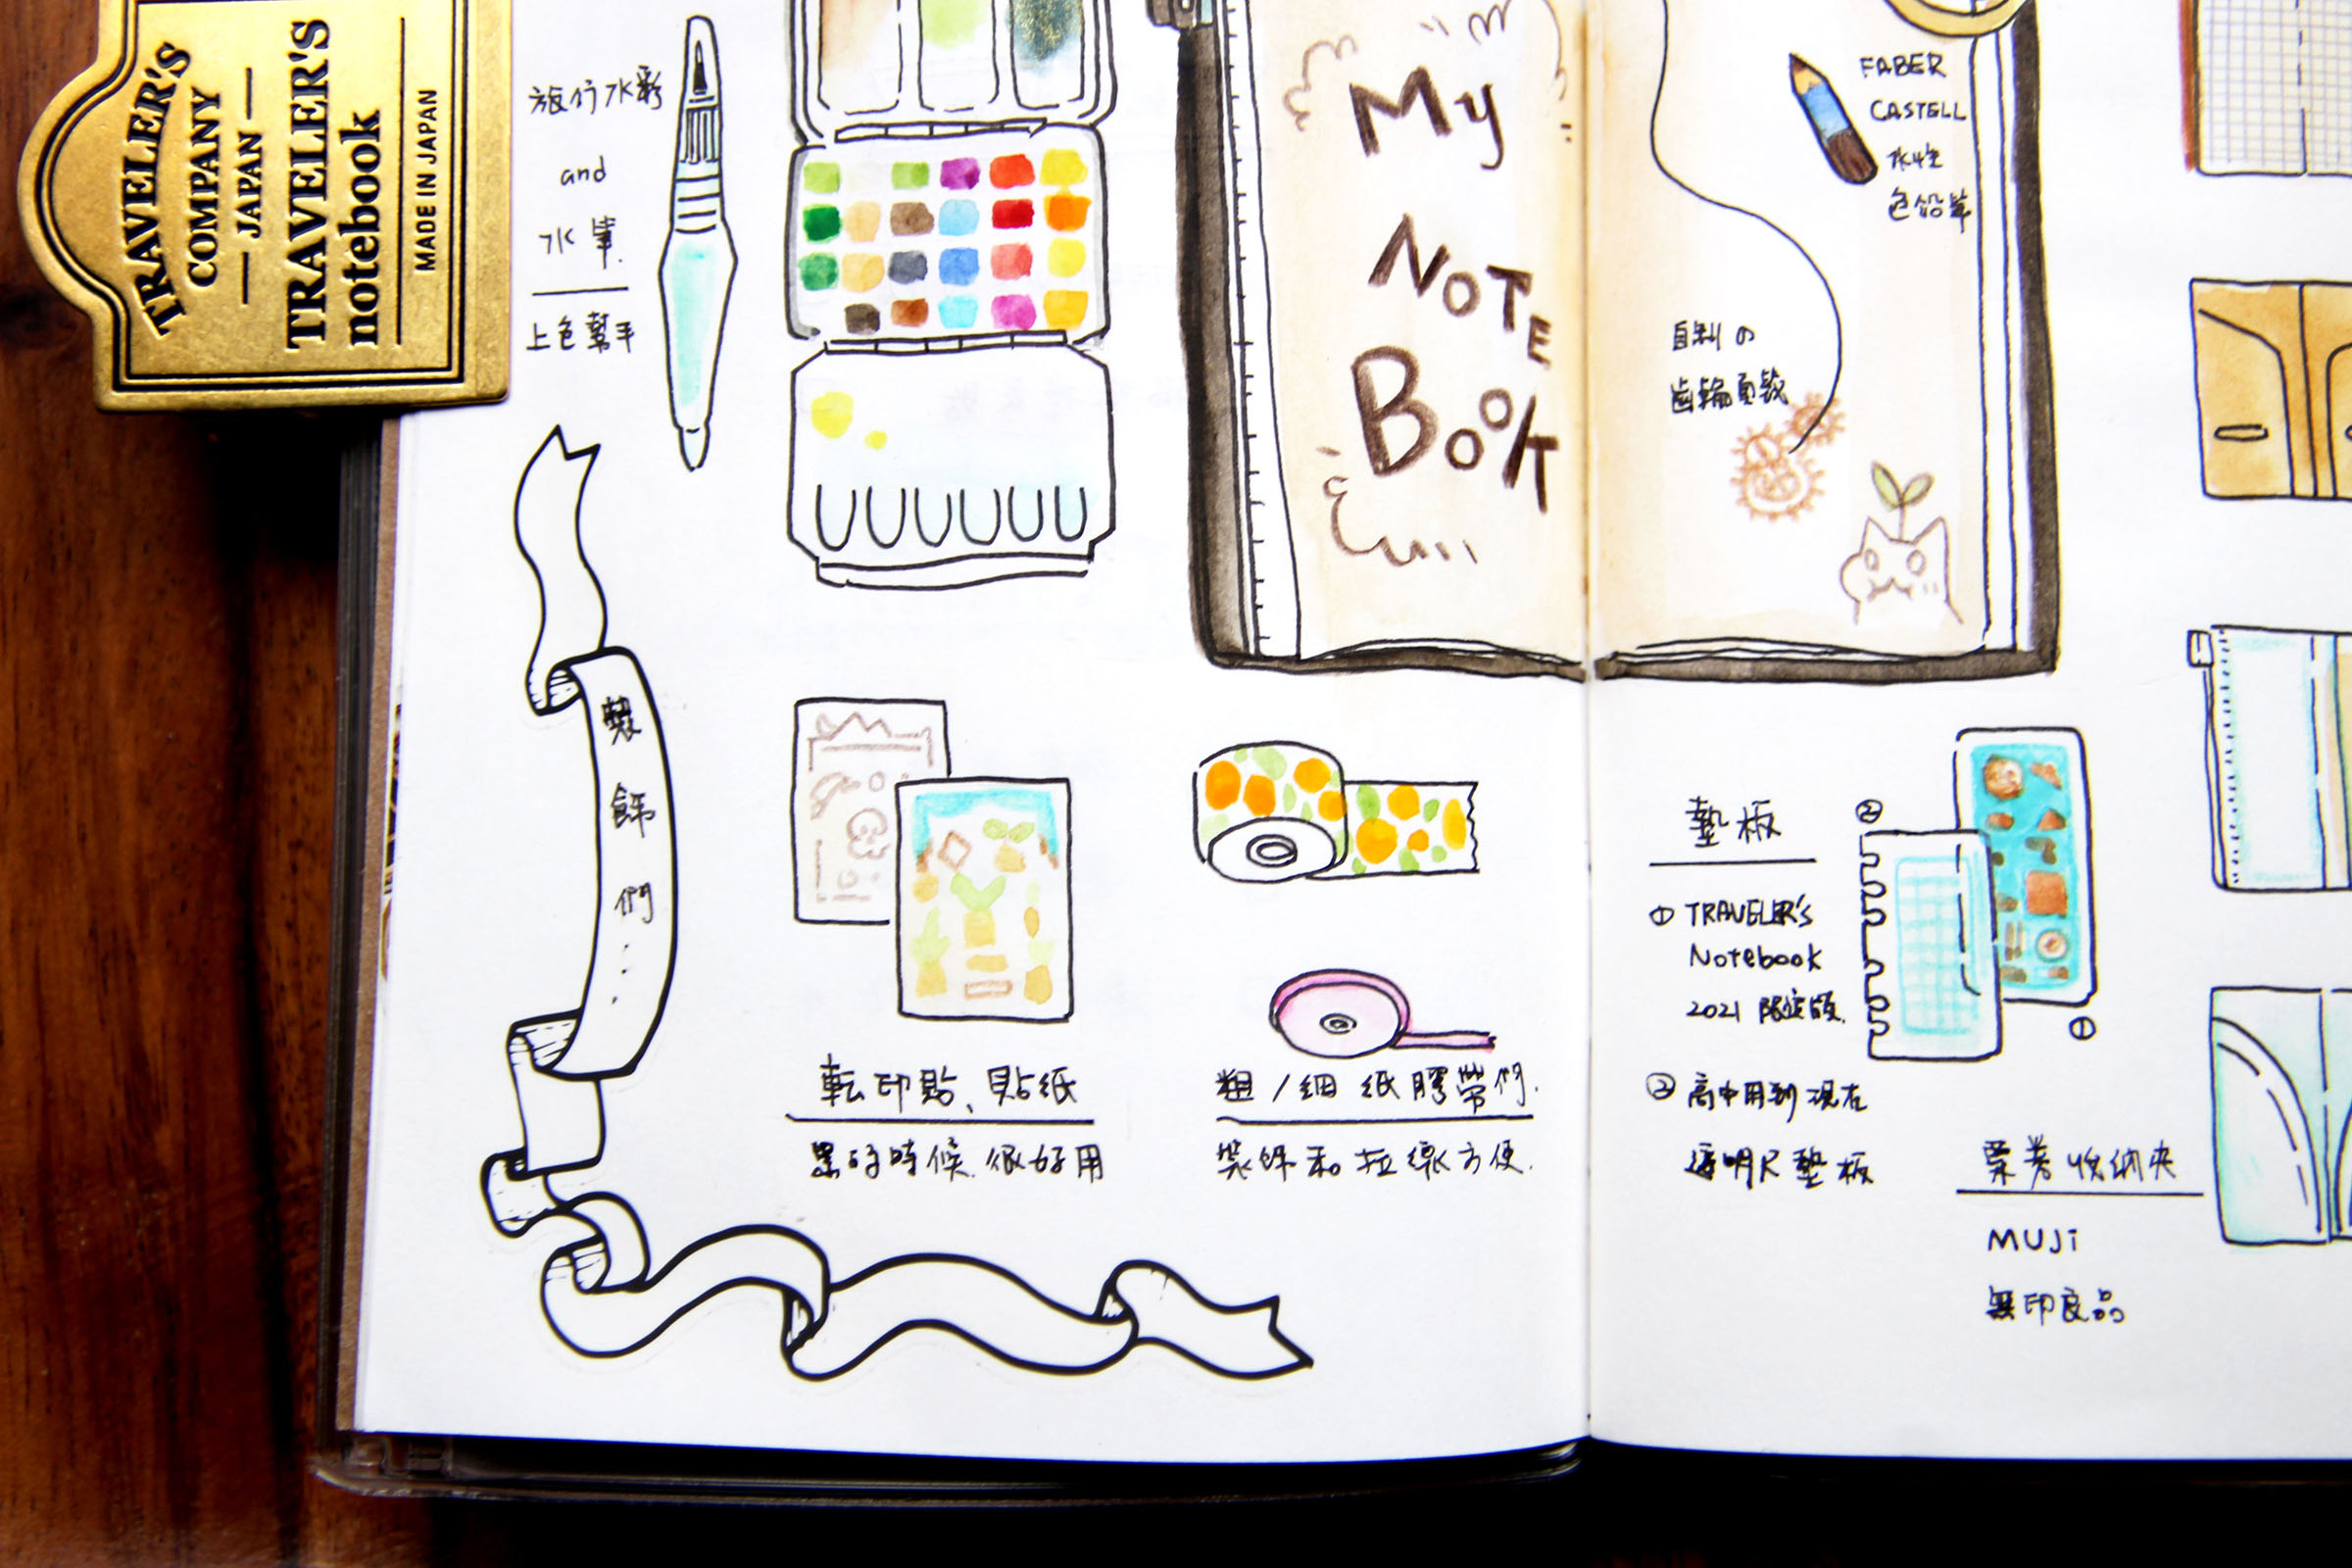 TRAVELER'S
COMPANY
JAPAN
TRAVELER'S
notebook
MADE IN JAPAN
旅行水彩
and
水筆.
上色幫手
My
NOTE
BOOK
FABER
CASTELL
水性
色鉛筆
自制の
齒輪頁裁
裝飾們...
転印貼、貼紙
黑的時候.很好用
粗/細 紙膠帶們.
裝飾和拉線方便.
墊板
① TRAVELER'S
Notebook
2021 限定版.
② 高中用到現在
透明尺墊板
②
①
收納夾
MUJi
無印良品